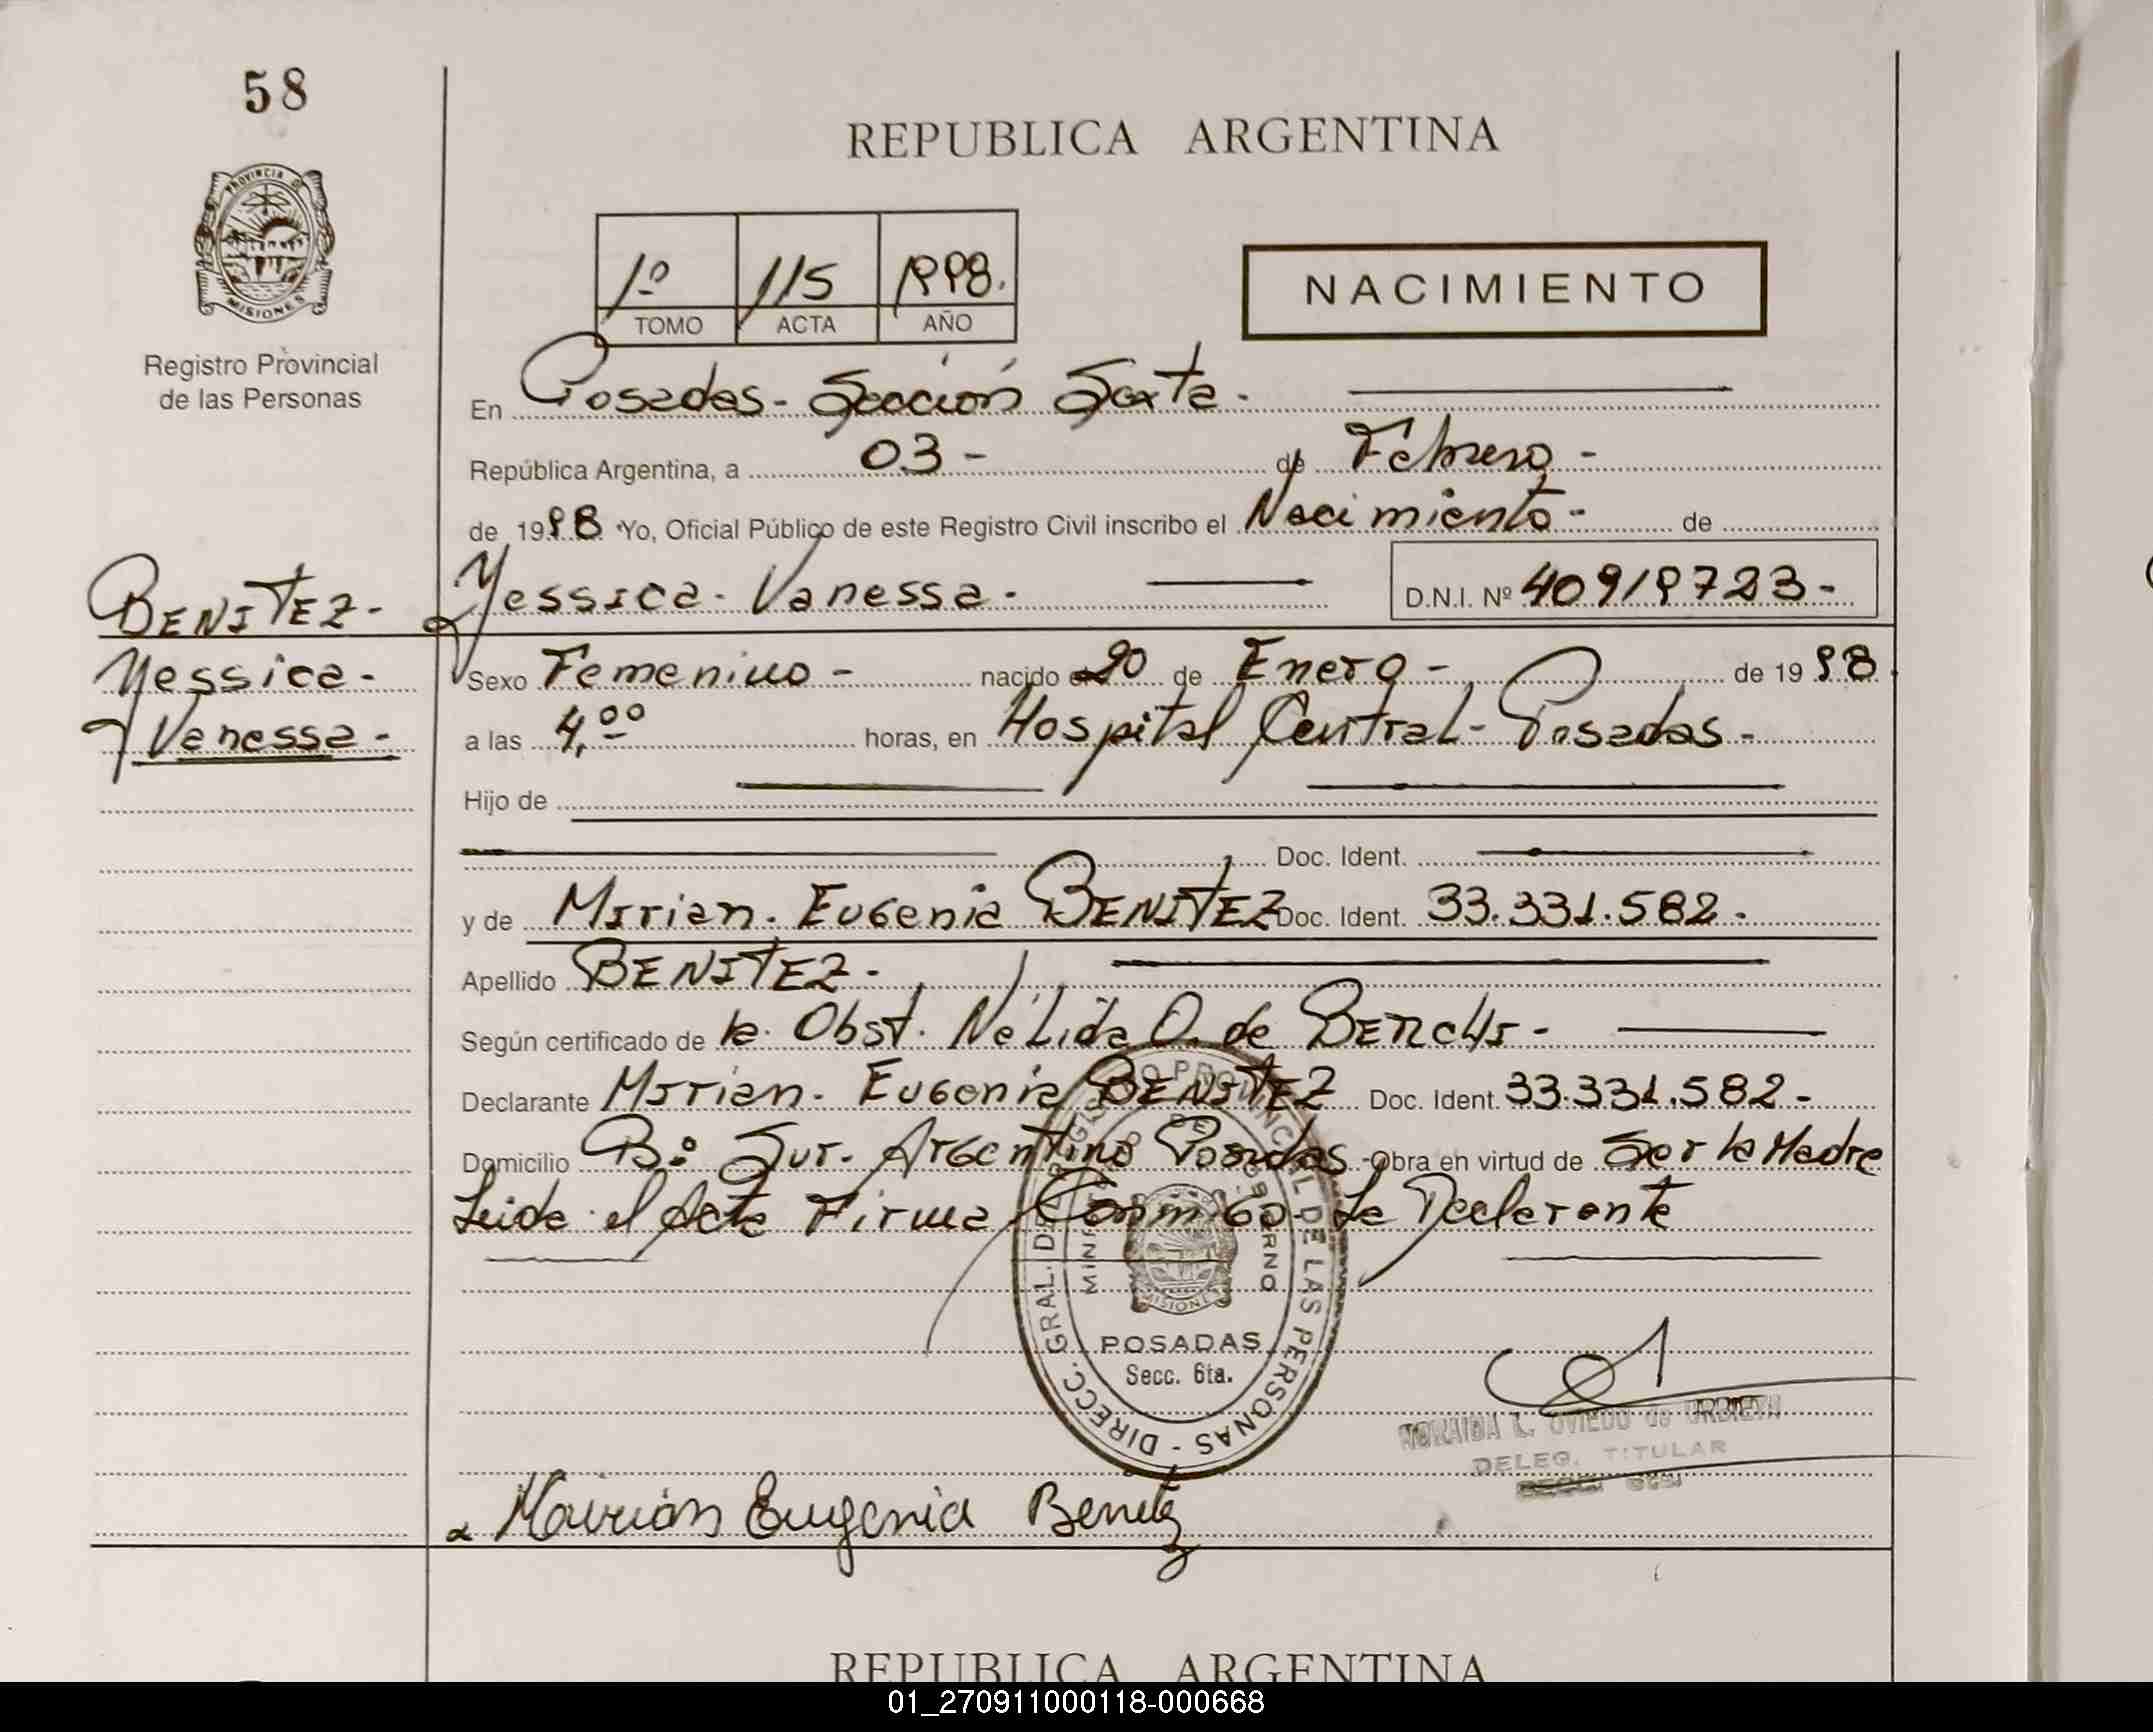 58
REPUBLICA ARGENTINA
PROVINCIA DE
MISIONES
Registro Provincial
de las Personas
1º 115 1998.
TOMO ACTA AÑO
NACIMIENTO
En Posadas - Sección Sexta -
República Argentina, a 03 - de Febrero -
de 1998 Yo, Oficial Público de este Registro Civil inscribo el Nacimiento - de
Yessica - Vanessa - D.N.I. Nº 40919723 -
BENITEZ -
Yessica -
Vanessa -
Sexo Femenino - nacido 20 de Enero - de 1998
a las 4,00 horas, en Hospital Central - Posadas -
Hijo de
Doc. Ident.
y de Mirian - Eugenia BENITEZ Doc. Ident. 33.331.582 -
Apellido BENITEZ -
Según certificado de la Obst. Nélida O. de
Declarante Mirian - Eugenia BENITEZ Doc. Ident. 33.331.582 -
Domicilio Bº Sur - Argentino Posadas - Obra en virtud de Ser la Madre
Leida el Acta Firma Conmigo La Declarante
DIRECC. GRAL. DE REGISTRO PROVINCIAL DE LAS PERSONAS -
MINISTERIO DE GOBIERNO
MISIONES
POSADAS
Secc. 6ta.
OVIEDO de URBIETA
DELEG. TITULAR
Eugenia Benitez
REPUBLICA ARGENTINA
01_270911000118-000668